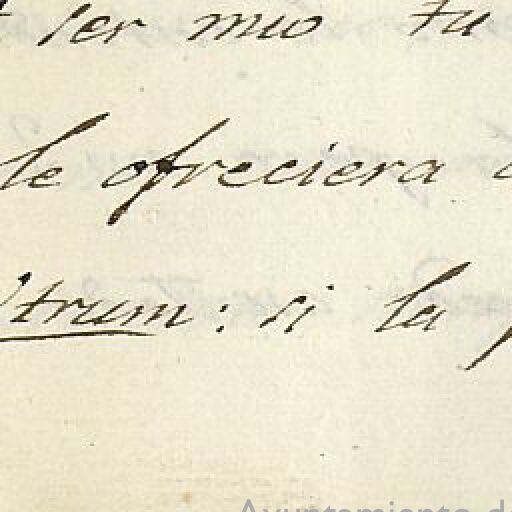 ser mio tu
le ofreciera
trum: si la
Ayuntamiento de